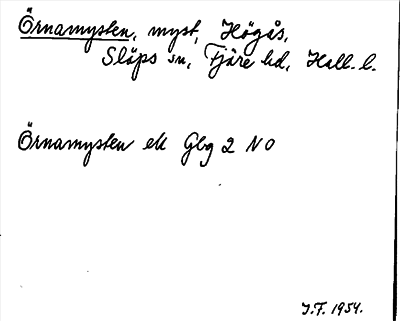 Örnamysten, myst, Högås,
Släps sn, Fjäre hd, Hall. l.
Örnamysten ek Gbg 2 NO
J.F. 1954.